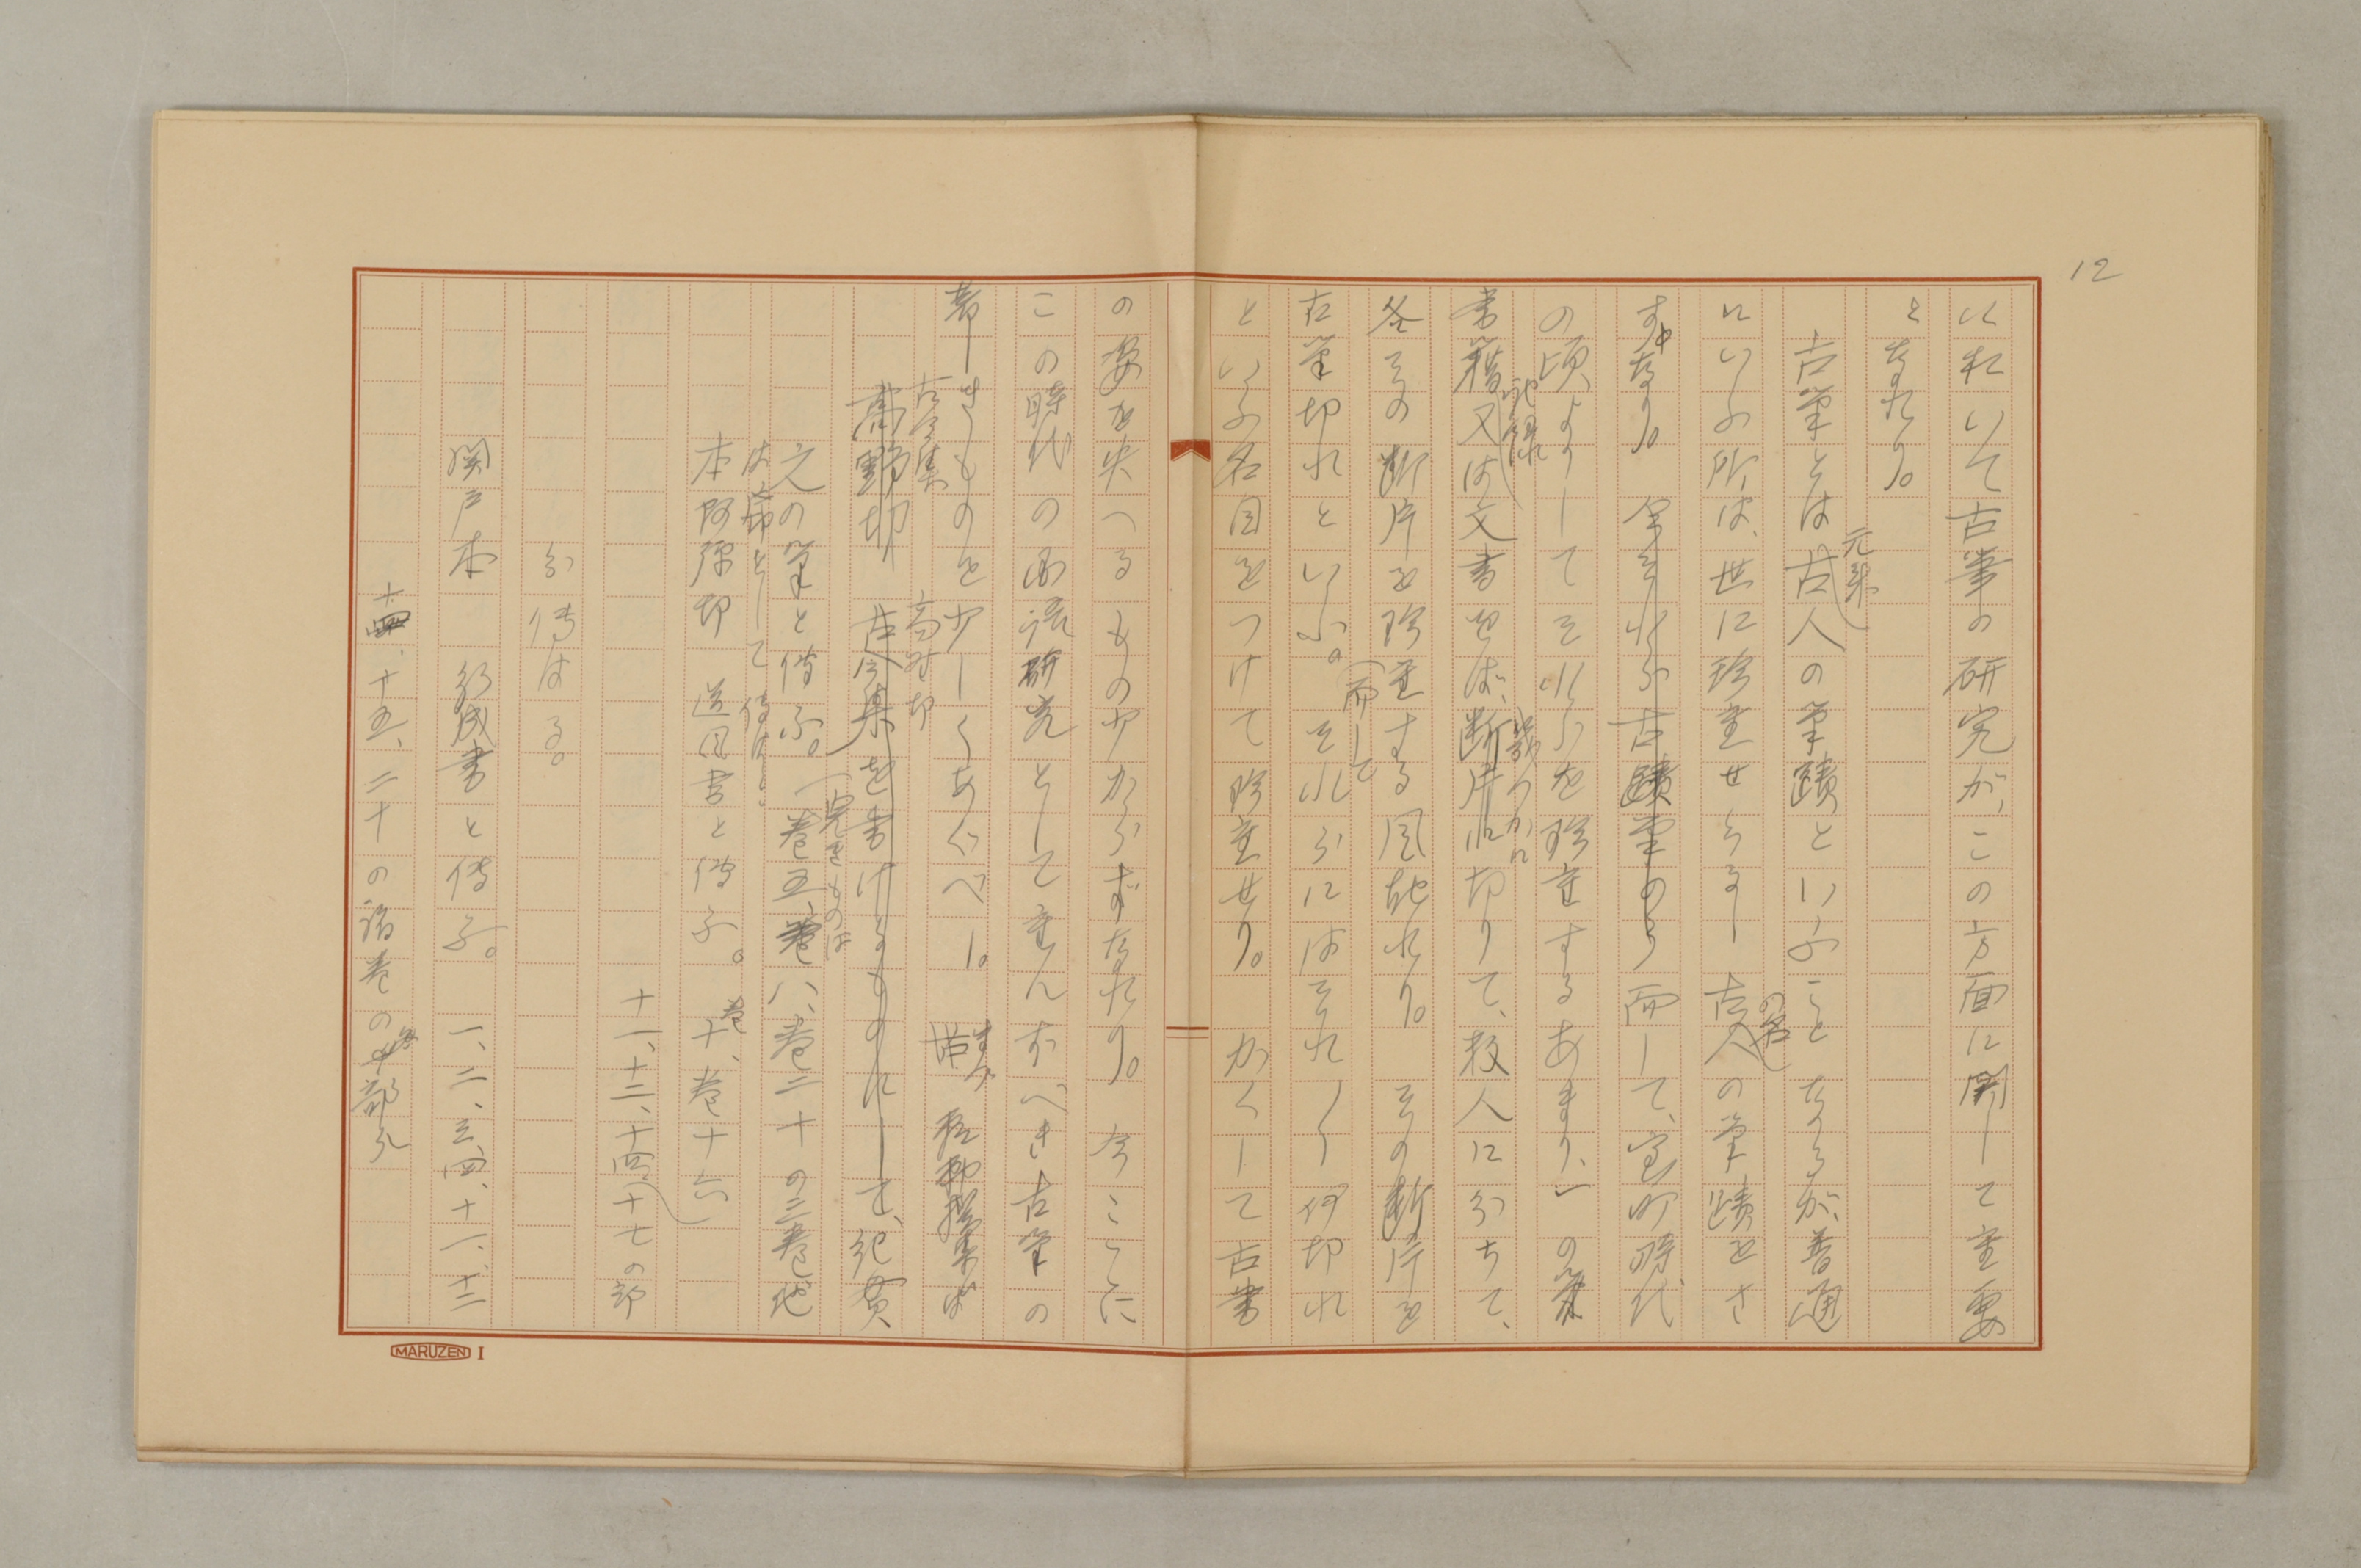 12
に於いて古筆の研究が、この方面に関して重要
となれり。
古筆とは元来古人の筆蹟といふことなるが、普通
にいふ所は、世に珍重せらるし古人の名の筆蹟をさ
すなり。今それら古蹟筆のう而して、室町時代
の頃よりしてそれらを珍重するあまり、一の
書籍又は記録文書をば、幾つかに断片に切りて、数人に分ちて、
各その断片を珍重する風起れり。その断片を
古筆切れといふ。(而してそれらにはそれ〳〵何切れ
といふ名目をつけて珍重せり。かくして古書
の姿を失へるもの少からず なれり。今こゝに
この時代の国語研究として重んずべき古筆の
著しきものを少しくあぐべし。まづ
古今集 高野切
高野切 古今集を書けるものにして、紀貫
之の筆と傳ふ。(完きものは巻五、巻八、巻二十の三巻他
は断片として傳はる
本阿弥切 道風書と傳ふ。巻十、巻十六
十一、十二、十四、十七の部
分傳はる。
関戸本 行成書と傳ふ。一、二、三、四、十一、十二
十四、十五、二十の諸巻の
MARUZEN I